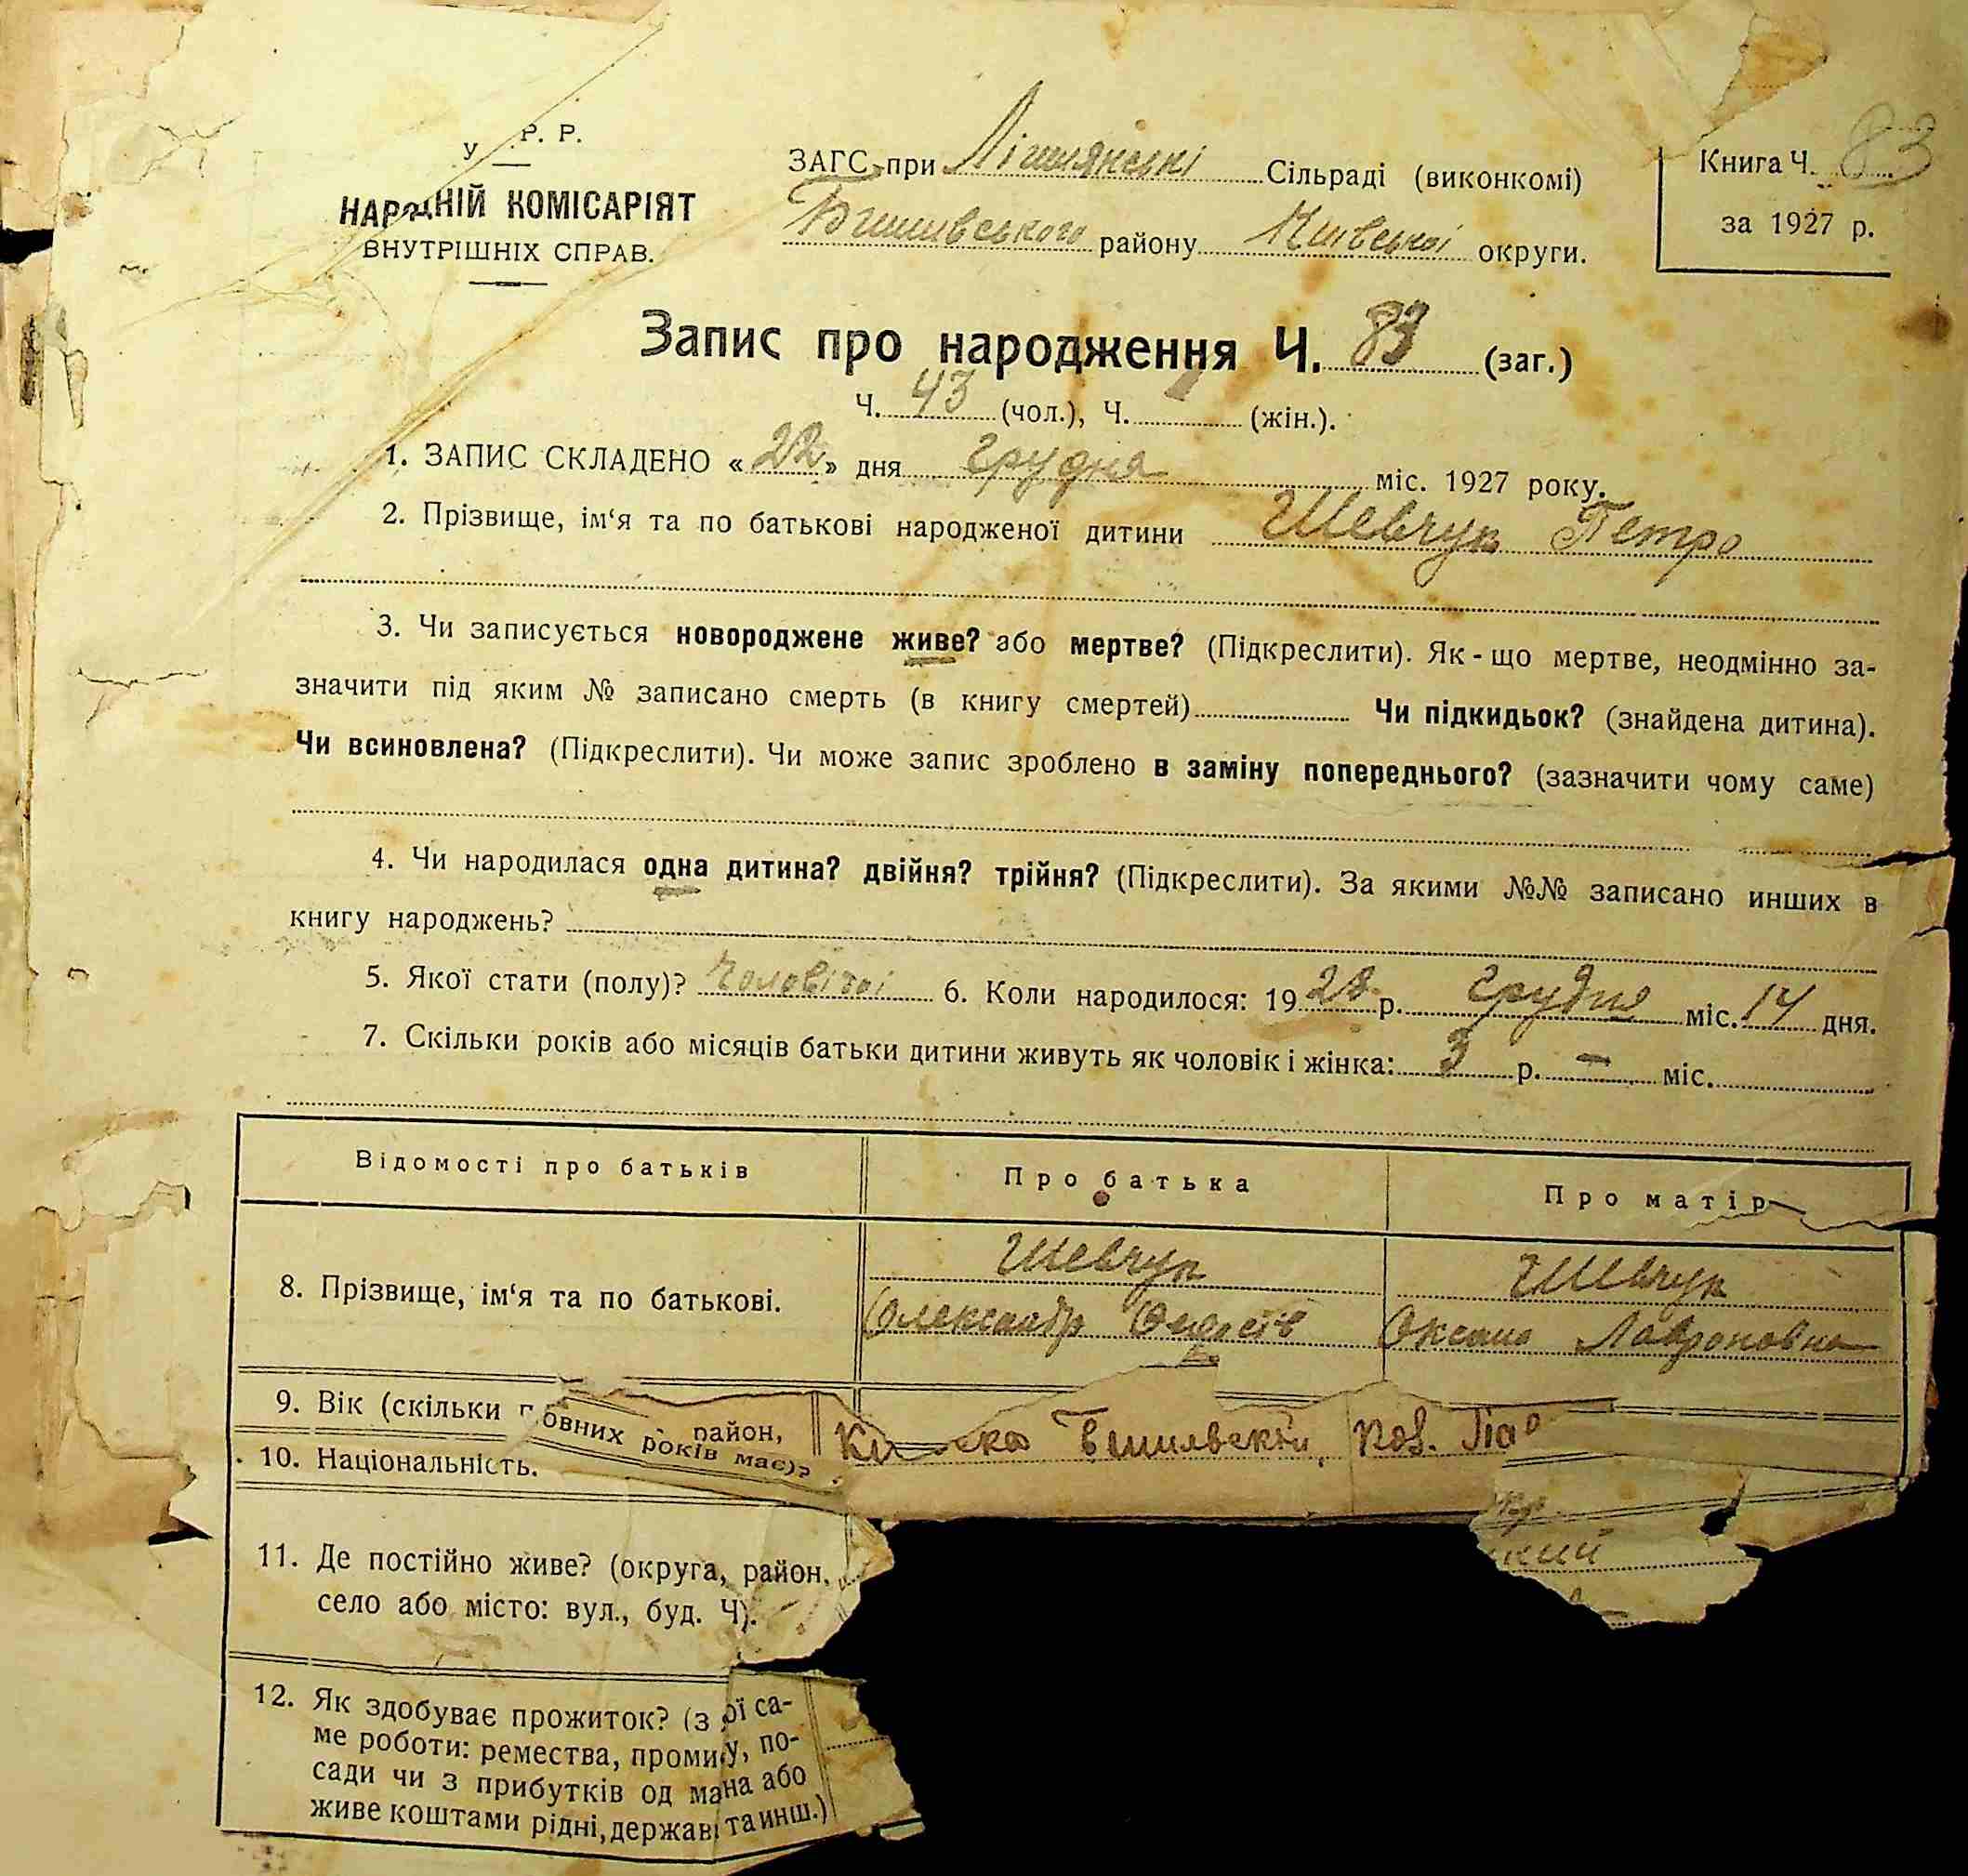 У Р. Р.
НАРОДНІЙ КОМІСАРІЯТ
ВНУТРІШНІХ СПРАВ.
ЗАГС при Сільраді (виконкомі)
району Київської округи.
Книга Ч. 83
за 1927 р.
Запис про народження Ч. 83 (заг.)
Ч. 43 (чол.), Ч. (жін.).
1. ЗАПИС СКЛАДЕНО « 22 » дня грудня міс. 1927 року.
2. Прізвище, ім‘я та по батькові народженої дитини Шевчук Петро
3. Чи записується новороджене живе? або мертве? (Підкреслити). Як - що мертве, неодмінно за-
значити під яким № записано смерть (в книгу смертей) Чи підкидьок? (знайдена дитина).
Чи всиновлена? (Підкреслити). Чи може запис зроблено в заміну попереднього? (зазначити чому саме)
4. Чи народилася одна дитина? двійня? трійня? (Підкреслити). За якими №№ записано инших в
книгу народжень?
5. Якої стати (полу)? чоловічої 6. Коли народилося: 19 р. грудня міс. 14 дня.
7. Скільки років або місяців батьки дитини живуть як чоловік і жінка: 3 р. — міс.
Відомості про батьків Про батька Про матір
8. Прізвище, ім‘я та по батькові.
Шевчук Шевчук
Олександр Оксана
9. Вік (скільки повних років має)?
район,
10. Національність.
11. Де постійно живе? (округа, район,
село або місто: вул., буд. Ч).
12. Як здобуває прожиток? (з ої са-
ме роботи: ремества, проми у, по-
сади чи з прибутків од ма на або
живе коштами рідні, держав та инш.)